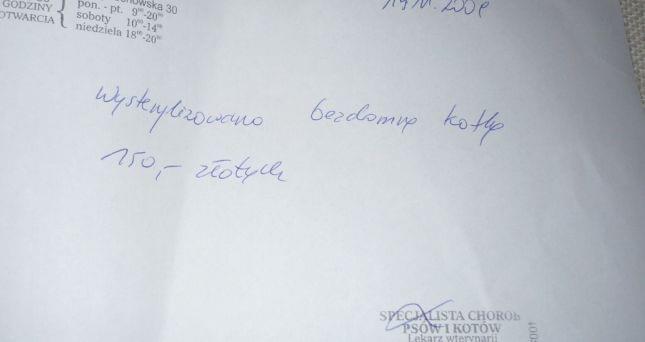 30
GODZINY
OTWARCIA
pon. - pt. 9⁰⁰-20⁰⁰
soboty 10⁰⁰-14⁰⁰
niedziela 18⁰⁰-20⁰⁰
Wysterylizowano bezdomną kotkę
150,- złotych
SPECJALISTA CHORÓB
PSÓW I KOTÓW
Lekarz weterynarii